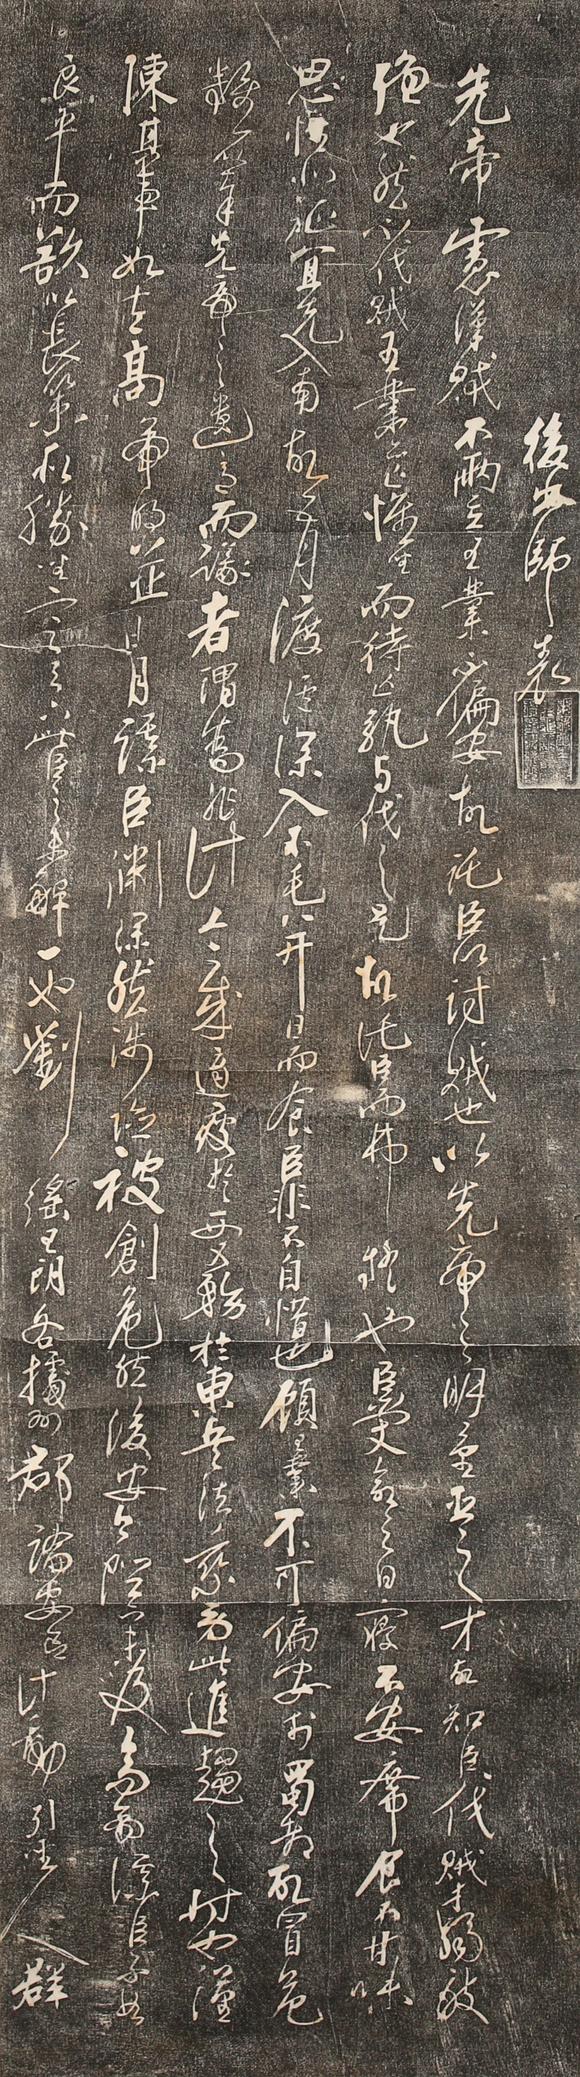 後出師表
先帝慮漢賊不兩立王業不偏安故託臣以討賊也以先帝之明量臣之才故知臣伐賊才弱敵
強也然不伐賊王業亦亡惟坐而待亡孰與伐之是故託臣而弗疑也臣受命之日寢不安席食不甘味
思惟北征宜先入南故五月渡瀘深入不毛并日而食臣非不自惜也顧王業不可偏安於蜀都故冒危
難以奉先帝之遺意而議者謂為非計今賊適疲於西又務於東兵法乘勞此進趨之時也謹
陳其事如左高帝明並日月謀臣淵深然涉險被創危然後安今陛下未及高帝謀臣不如
良平而欲以長策取勝坐定天下此臣之未解一也劉繇王朗各據州郡論安言計動引聖人群